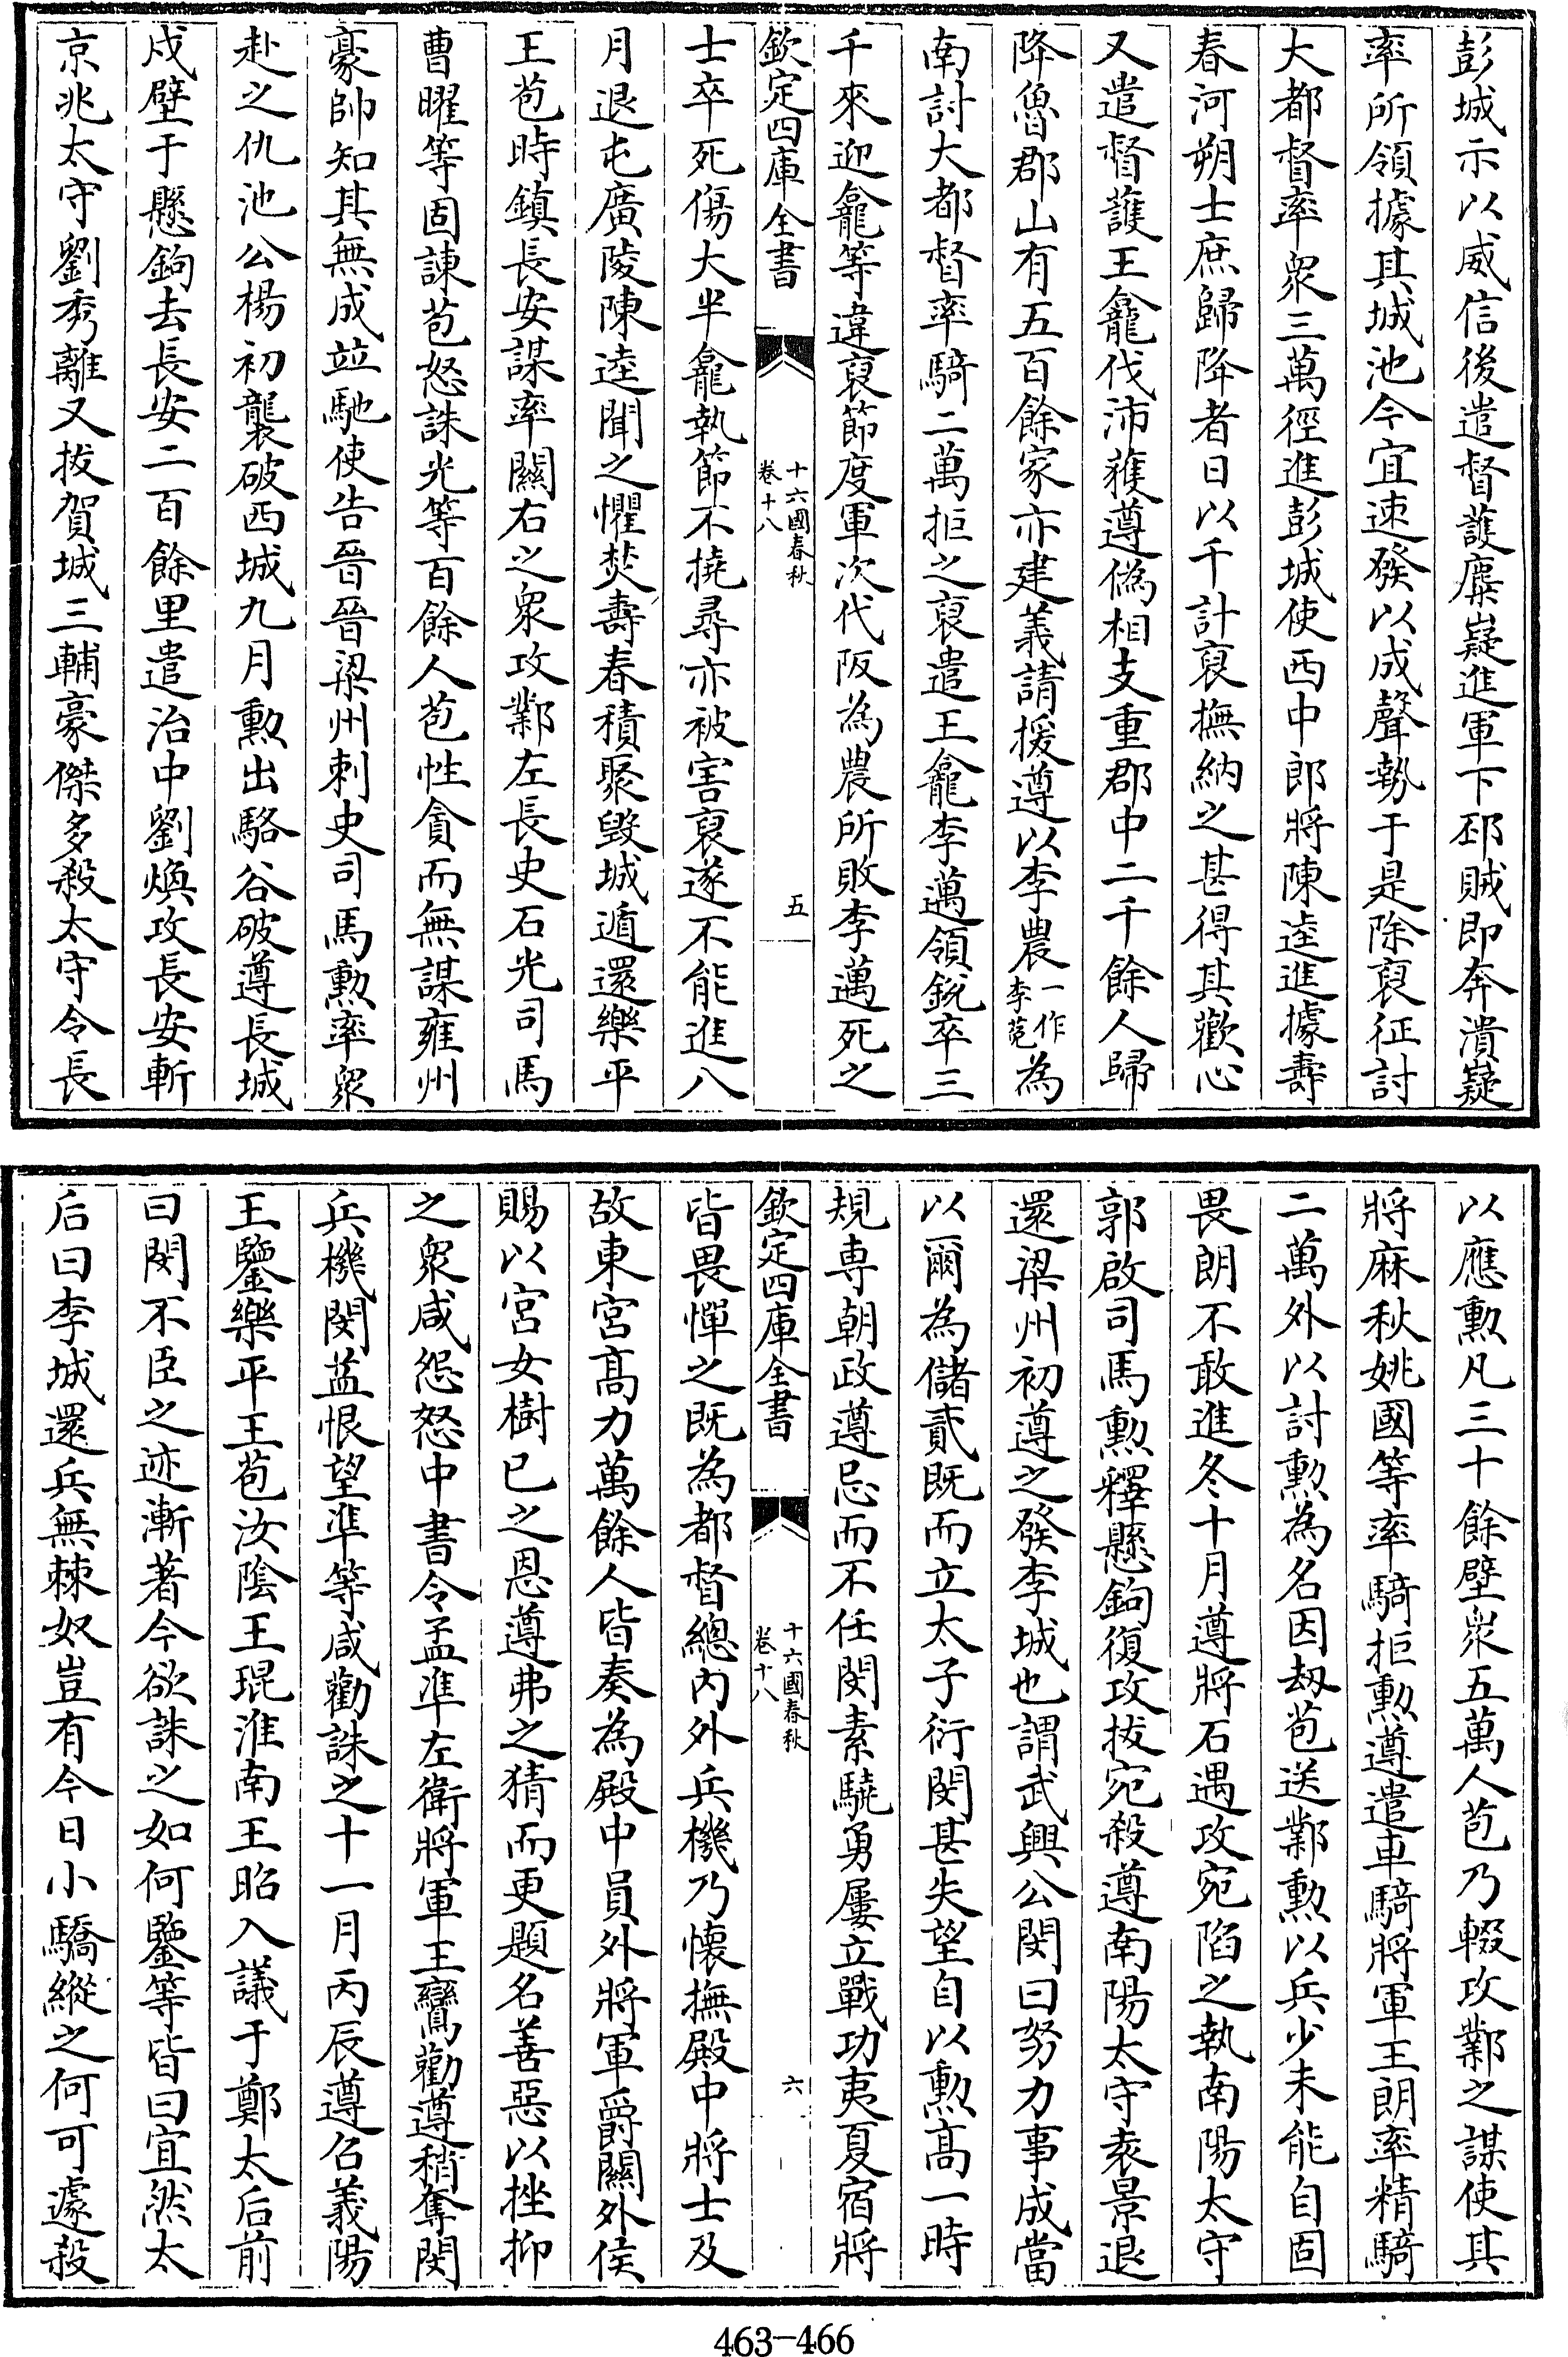 彭城示以威信後遣督護麋嶷進軍下邳賊即奔潰嶷
率所領據其城池今宜速發以成聲勢于是除裒征討
大都督率衆三萬徑進彭城使西中郎將陳逵進據壽
春河朔士庶歸降者日以千計裒撫納之甚得其歡心
又遣督護王龕伐沛獲遵偽相支重郡中二千餘人歸
降魯郡山有五百餘家亦建義請援遵以李農一作李菟為
南討大都督率騎二萬拒之裒遣王龕李邁領銳卒三
千來迎龕等違裒節度軍次代陂為農所敗李邁死之
欽定四庫全書
十六國春秋
卷十八
五
士卒死傷大半龕執節不撓尋亦被害裒遂不能進八
月退屯廣陵陳逵聞之懼焚壽春積聚毀城遁還樂平
王苞時鎮長安謀率關右之衆攻鄴左長史石光司馬
曹曜等固諫苞怒誅光等百餘人苞性貪而無謀雍州
豪帥知其無成並馳使告晉晉梁州刺史司馬勲率衆
赴之仇池公楊初襲破西城九月勲出駱谷破遵長城
戍壁于懸鉤去長安二百餘里遣治中劉煥攻長安斬
京兆太守劉秀離又拔賀城三輔豪傑多殺太守令長
以應勲凡三十餘壁衆五萬人苞乃輟攻鄴之謀使其
將麻秋姚國等率騎拒勲遵遣車騎將軍王朗率精騎
二萬外以討勲為名因刼苞送鄴勲以兵少未能自固
畏朗不敢進冬十月遵將石遇攻宛陷之執南陽太守
郭啟司馬勲釋懸鉤復攻拔宛殺遵南陽太守袁景退
還梁州初遵之發李城也謂武興公閔曰努力事成當
以爾為儲貳既而立太子衍閔甚失望自以勲高一時
規専朝政遵忌而不任閔素驍勇屢立戰功夷夏宿將
欽定四庫全書
十六國春秋
卷十八
六
皆畏憚之既為都督總內外兵機乃懷撫殿中將士及
故東宮高力萬餘人皆奏為殿中員外將軍爵關外侯
賜以宮女樹已之恩遵弗之猜而更題名善惡以挫抑
之衆咸怨怒中書令孟凖左衛將軍王鸞勸遵稍奪閔
兵機閔益恨望凖等咸勸誅之十一月丙辰遵召義陽
王鑒樂平王苞汝陰王琨淮南王昭入議于鄭太后前
曰閔不臣之迹漸著今欲誅之如何鑒等皆曰宜然太
后曰李城還兵無棘奴豈有今日小驕縱之何可遽殺
463-466